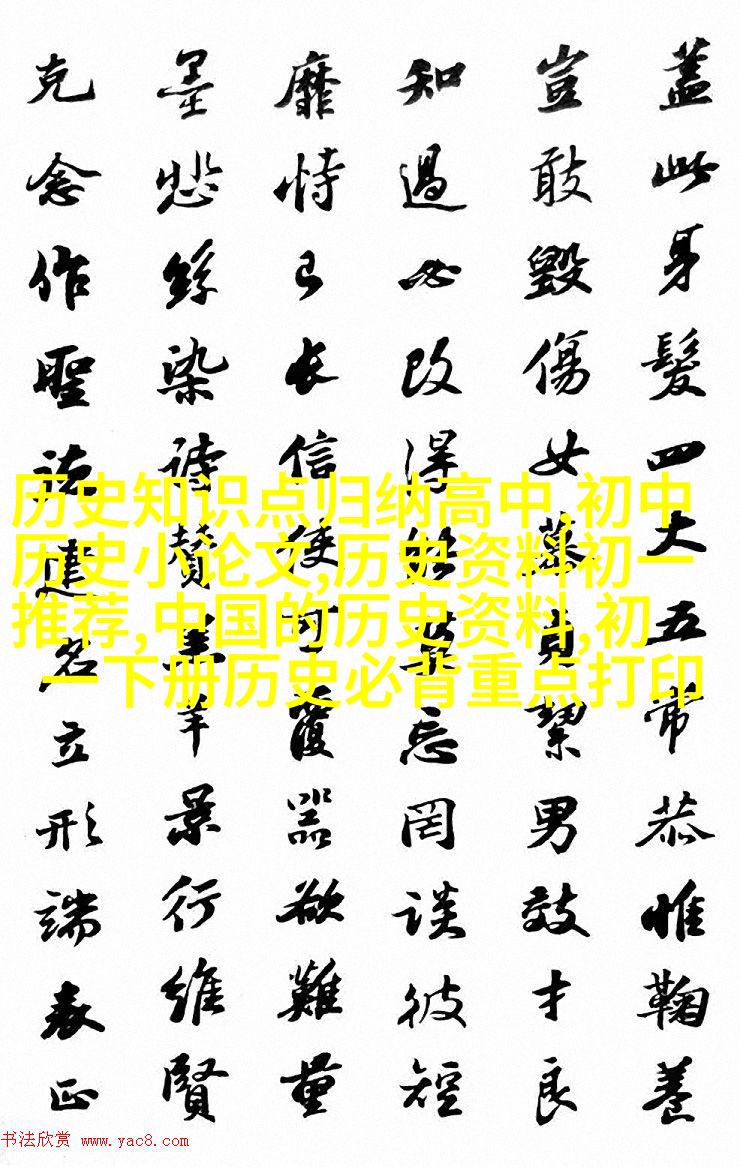 蓋此身髮四大五常恭惟鞠養
豈敢毀傷女慕貞絜男效才良
知過必改得能莫忘罔談彼短
靡恃己長信使可覆器欲難量
墨悲絲染詩贊羔羊景行維賢
克念作聖德建名立形端表正
历史知识点归纳高中,初中
历史小论文,历史资料初一
推荐,中国的历史资料,初
一下册历史必背重点打印
书法欣赏 www.yac8.com